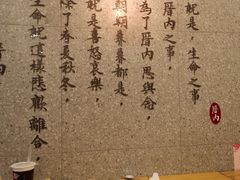 就是，生命之事
厝內
厝內之事，
為了厝內思與念，
朝朝暮暮都是，
就是喜怒哀樂，
除了春夏秋冬，
生命就這樣悲歡離合，
厝內